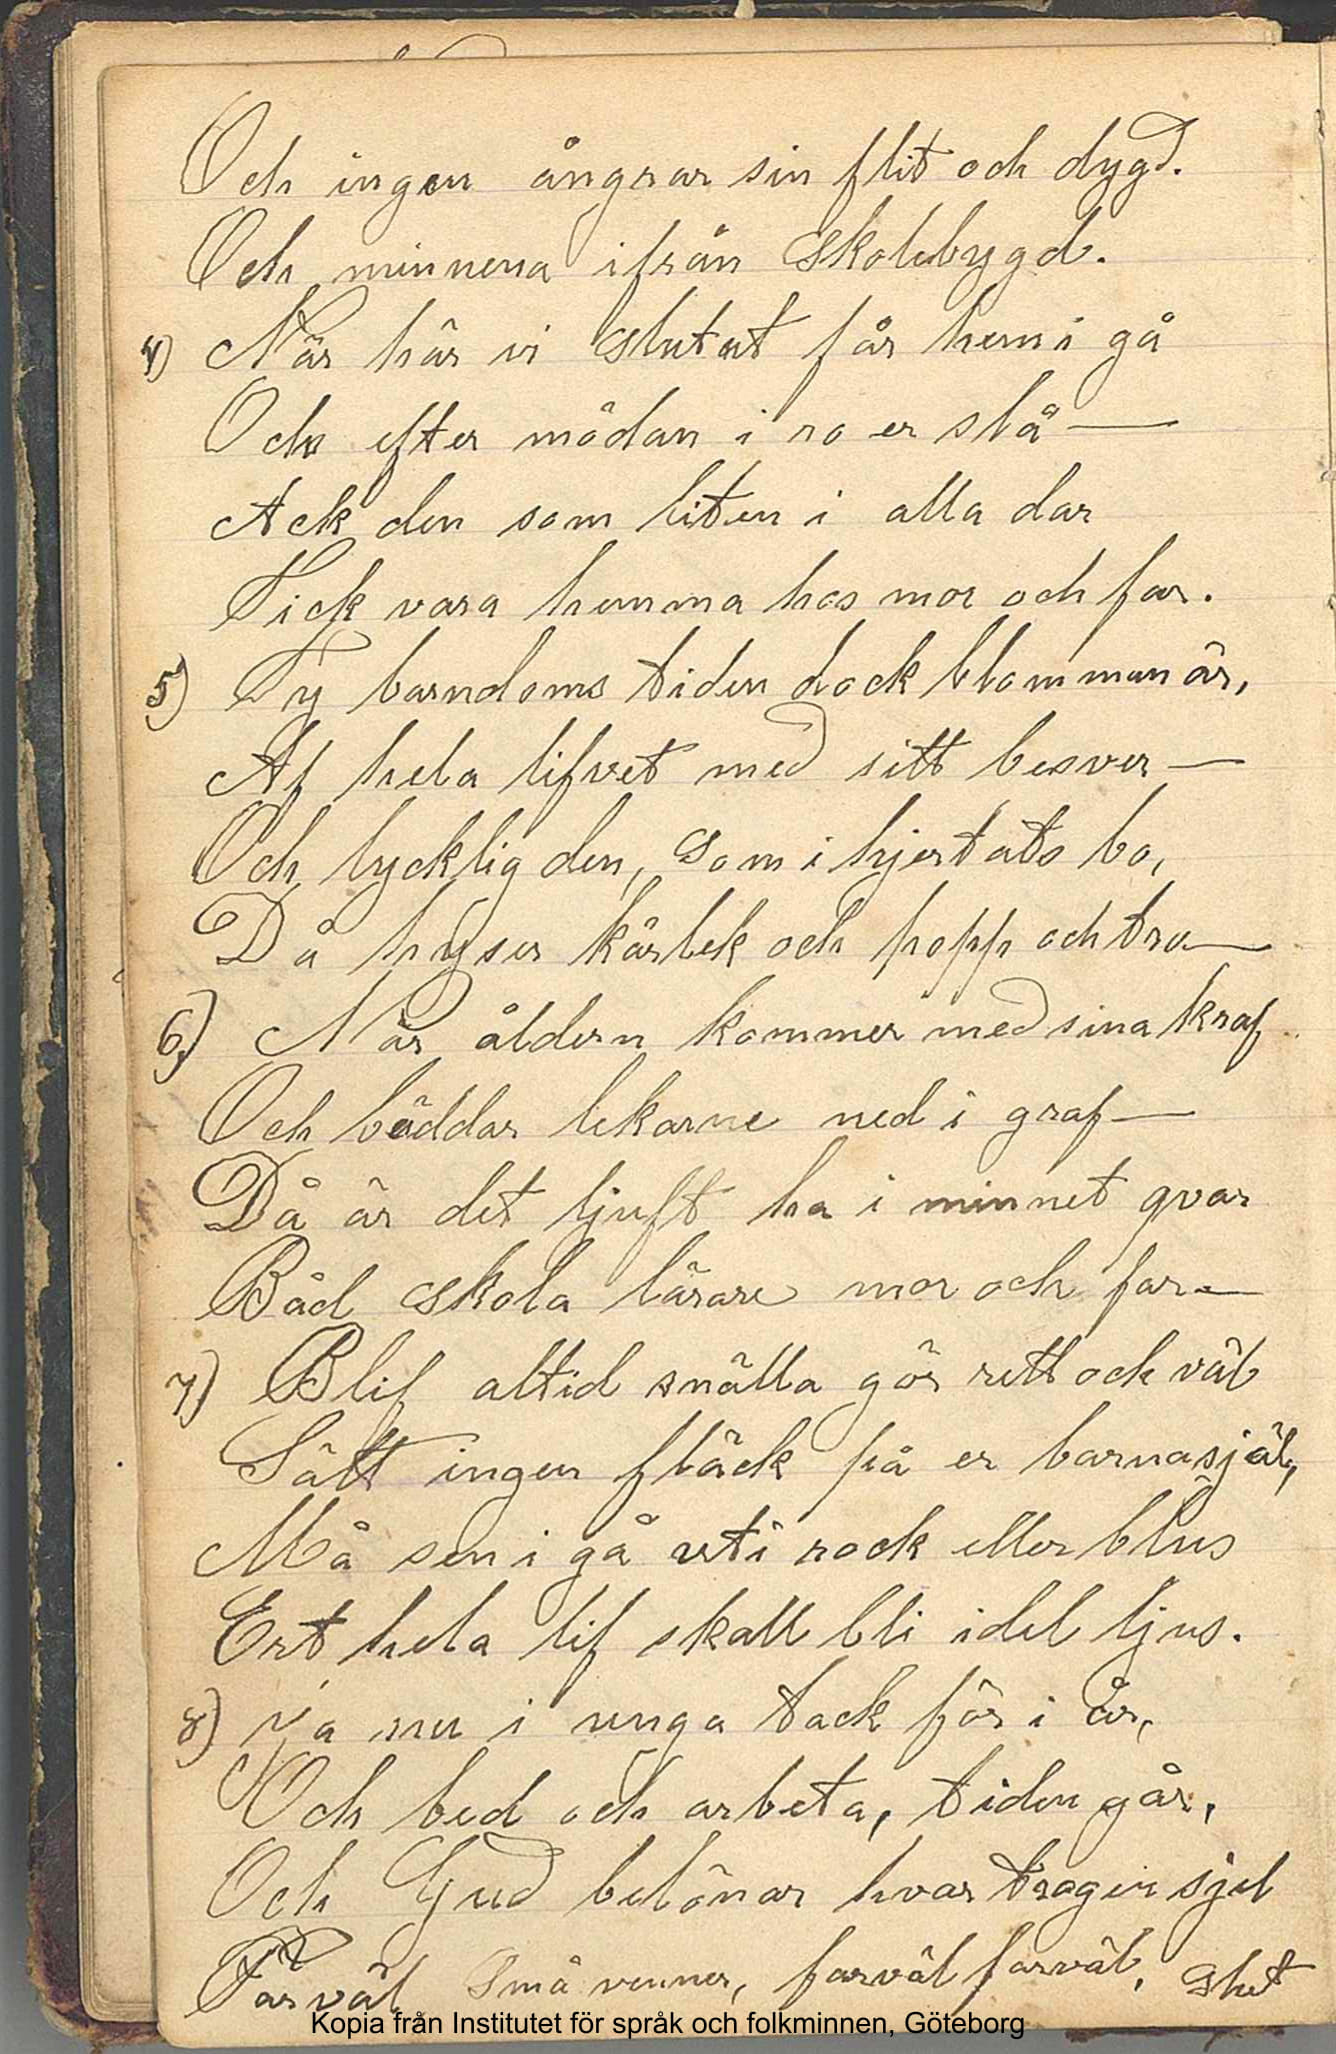 Och ingen ångrar sin flit och dygd.
Och minnena ifrån skolebygd.
4) När här vi slutat får hem i gå
Och efter mödan i ro er slå —
Ack den som liten i alla dar
Fick vara hemma hos mor och far.
5) Ty barndoms tiden dock blomman är,
Af hela lifvet med sitt besver —
Och lycklig den, som i hjertats bo,
Då hyser kärlek och hopp och tro —
6) När åldern kommer med sina kraf
Och bäddar lekarne ned i graf —
Då är det ljuft ha i minnet qvar
Båd skola lärare mor och far —
7) Blif altid snälla gör rett och väl
Sätt ingen fläck på er barnasjäl,
Må sen i gå uti rock eller blus
Ert hela lif skall bli idel ljus.
8) Ja nu i unga tack för i år,
Och bed och arbeta, tiden går,
Och Gud belönar hvar trogen sjel
Farväl små venner, farväl farväl. Slut
Kopia från Institutet för språk och folkminnen, Göteborg